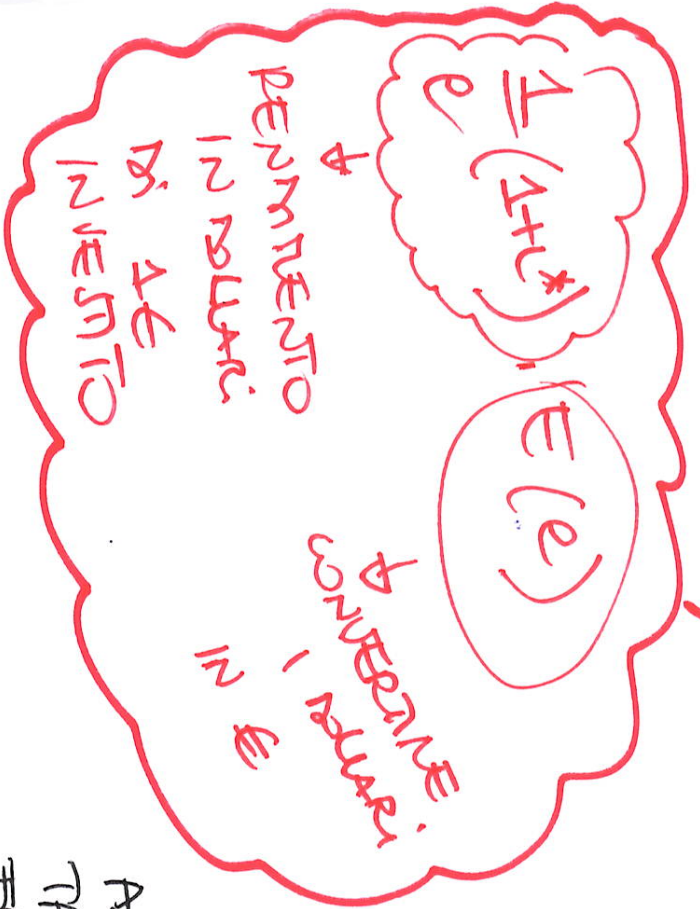 1/e (1+i*) · E(e)
↓
RENDIMENTO
IN DOLLARI
DI 1€
INVESTITO
↓
CONVERTIRE
I DOLLARI
IN €